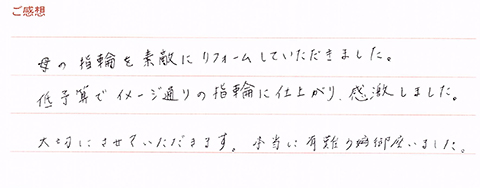 ご感想
母の指輪を素敵にリフォームしていただきました。
低予算でイメージ通りの指輪に仕上がり、感激しました。
大切にさせていただきます。本当に有難う御座いました。